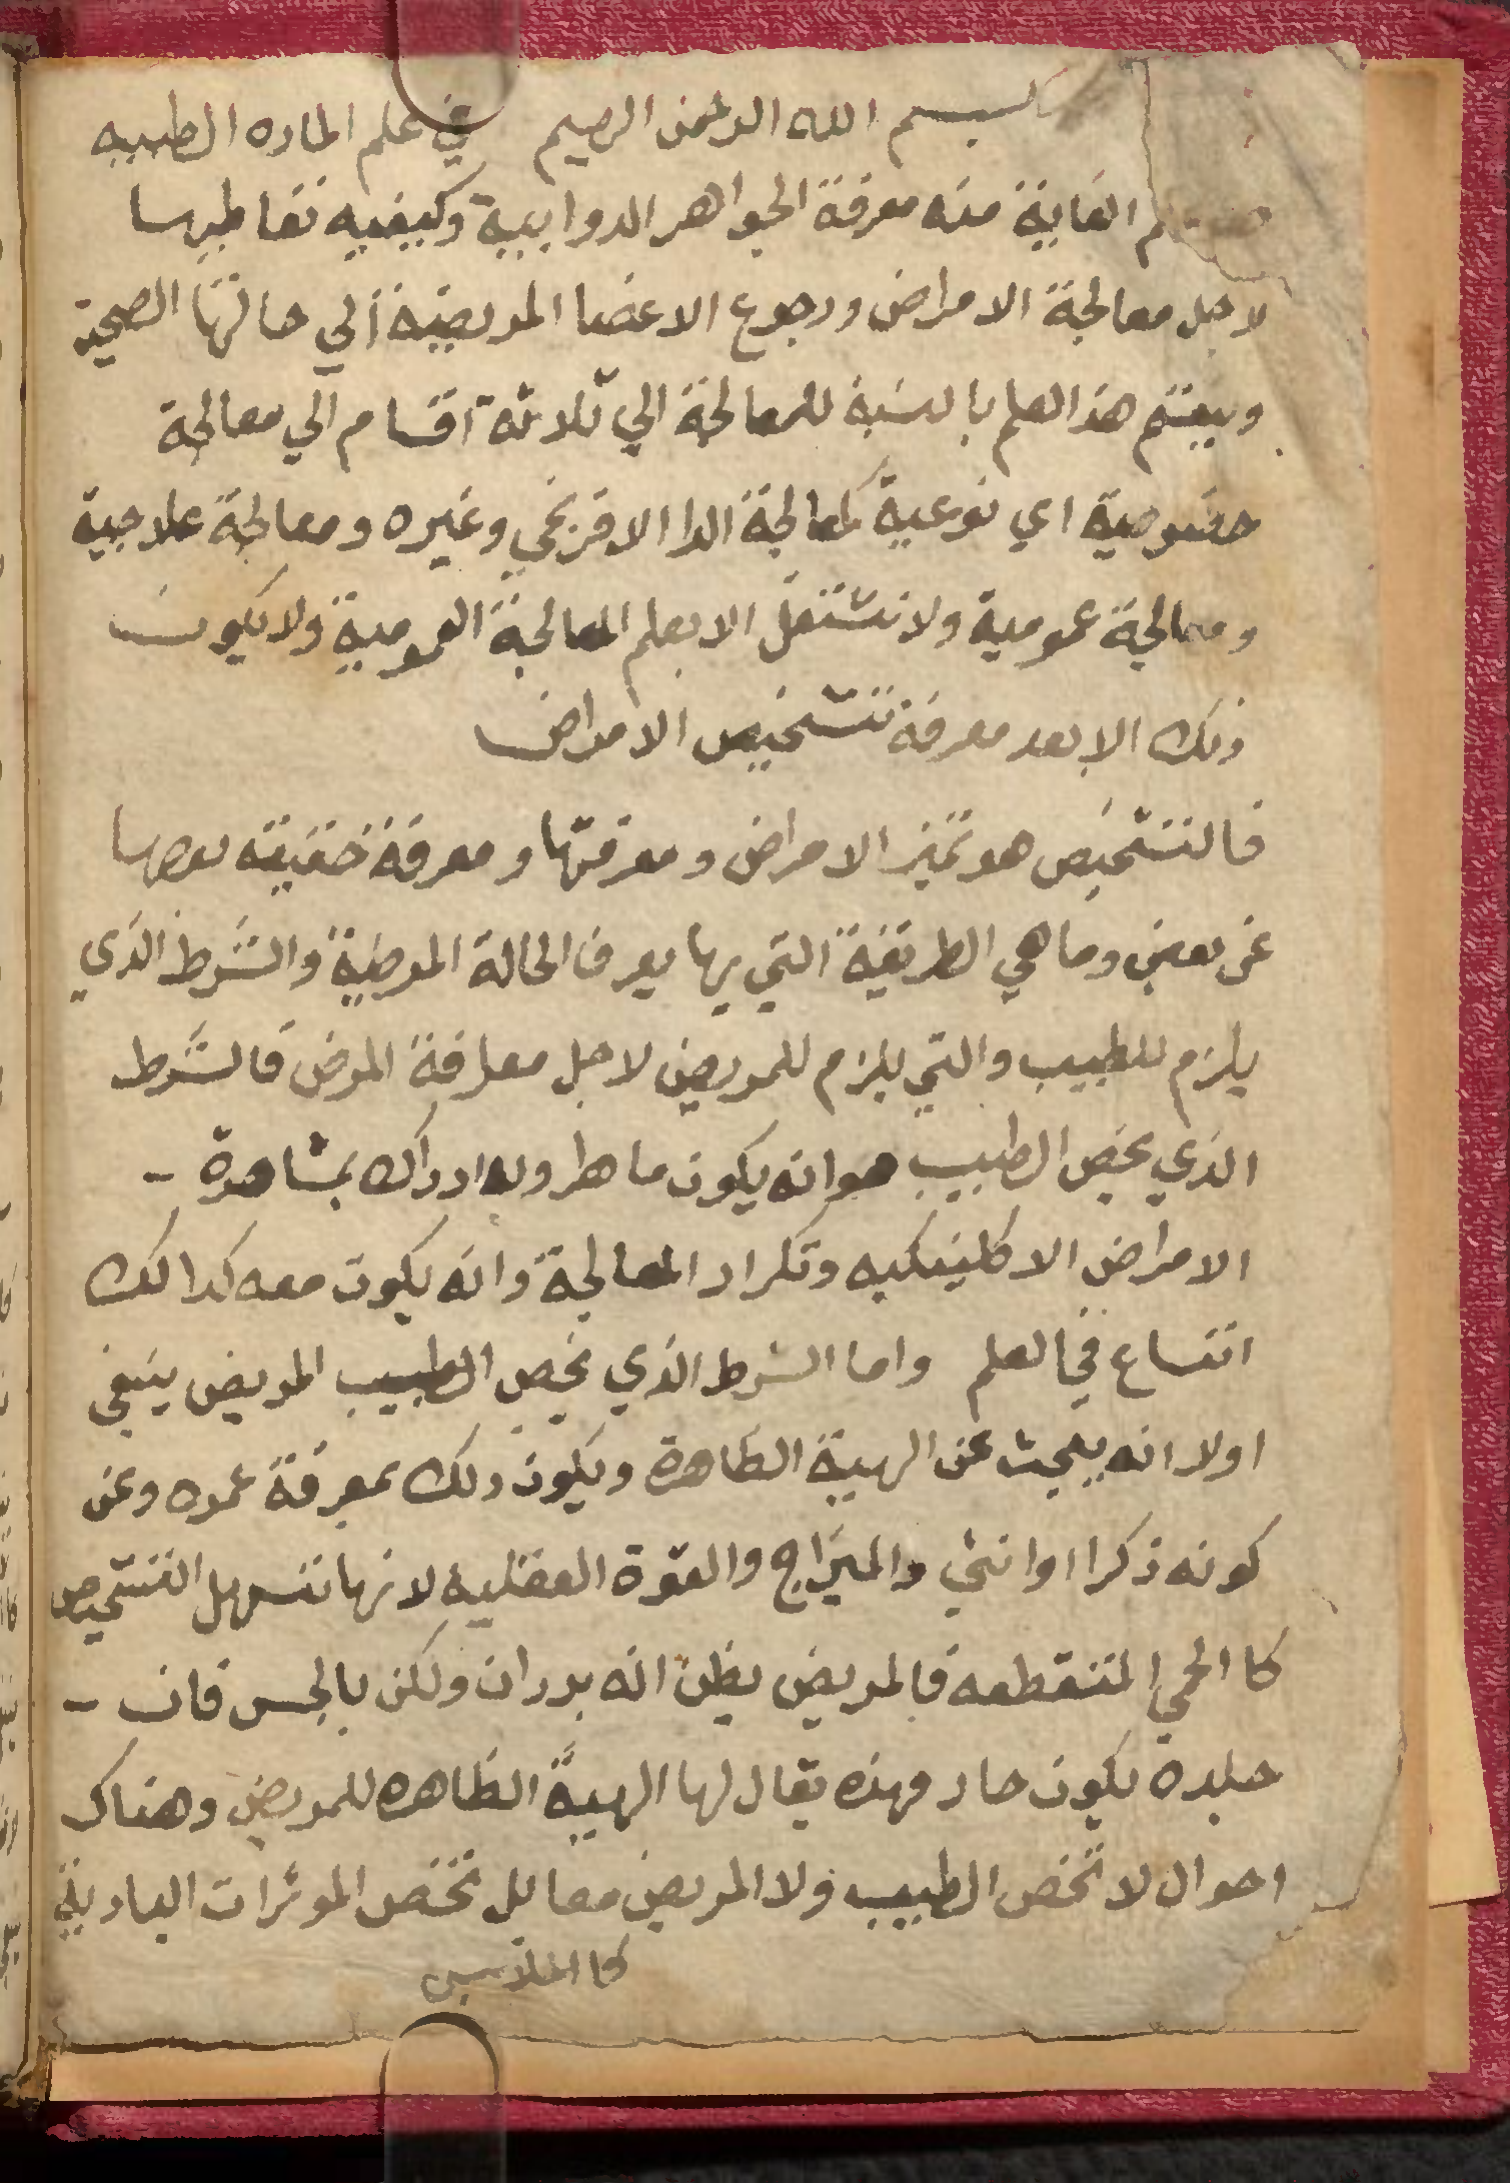 بسم الله الرحمن الرحيم في علم الماده الطبيه
الغاية منه معرفة الجواهر الدوابيية وكيفيه تعاطيها
لاجل معالجة الامراض ورجوع الاعضا المريضة الي حالتها الصحية
وينقسم هذا العلم بالنسبة للمعالجة الي ثلاثة اقسام الي معالجة
خصوصية اي نوعية كمعالجة الدا الافرنجي وغيره ومعالجة علاجية
ومعالجة عمومية ولا نشتغل الا بعلم المعالجة العمومية ولا يكون
ذلك الا بعد معرفة تشخيص الامراض
فالتشخيص هو تميز الامراض ومعرفتها ومعرفة حقيقة بعضها
عن بعض وما هي الطريقة التي بها يعرف الحالة المرضية والشرط الذي
يلزم للطبيب والتي يلزم للمريض لاجل معارفة المرض فالشرط
الذي يخص الطبيب هو انه يكون ماهر وله ادراك بمشاهدة -
الامراض الاكلينيكيه وتكرار المعالجة وانه يكون معه كدالك
اتساع في العلم واما الشرط الذي يخص الطبيب المريض ينبغي
اولا انه يبحث عن الهيية الظاهرة ويكون دلك بمعرفة عمره وعن
كونه ذكرا او انثي والميزاج والقوة العقليه لانها تسهل التشخيص
كا الحمي المتقطعه فالمريض يظن انه بردان ولكن بالجس فان -
جلده يكون حار وهذه يقال لها الهيية الظاهره للمريض وهناك
احوال لا تخص الطبيب ولا المريض معا بل تخص الموثرات العاديية
كا الملابس